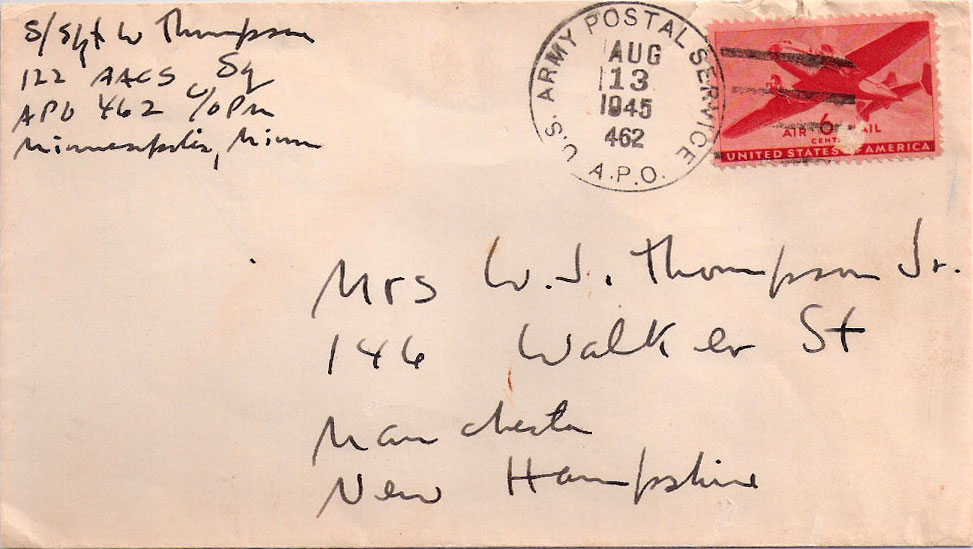 S/Sgt W Thompson
122 AACS Sq
APO 462 c/o Pm
Minneapolis, Minn
U.S. ARMY POSTAL SERVICE
AUG
13
1945
462
A.P.O.
6
AIR MAIL
CENTS
UNITED STATES OF AMERICA
Mrs W. J. Thompson Jr.
146 Walker St
Manchester
New Hampshire